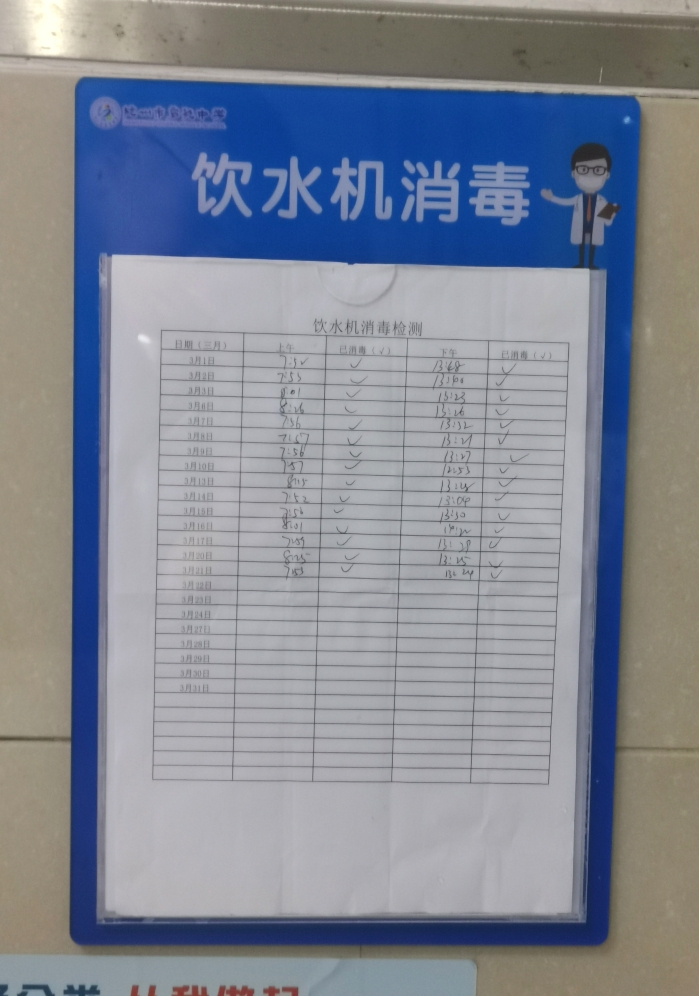 饮水机消毒
饮水机消毒检测
日期（三月） 上午 已消毒（√） 下午 已消毒（√）
3月1日 ✓ 13:48 ✓
3月2日 7:53 ✓ ✓
3月3日 8:01 ✓ 13:23 ✓
3月6日 8:26 ✓ 13:26 ✓
3月7日 7:56 ✓ 13:32 ✓
3月8日 7:57 ✓ 13:21 ✓
3月9日 7:56 ✓ 13:27 ✓
3月10日 7:57 ✓ 12:53 ✓
3月13日 8:15 ✓ ✓
3月14日 7:52 ✓ 13:04 ✓
3月15日 7:56 ✓ 13:30 ✓
3月16日 8:01 ✓ ✓
3月17日 ✓ ✓
3月20日 8:25 ✓ 13:25 ✓
3月21日 ✓ 13:24 ✓
3月22日
3月23日
3月24日
3月27日
3月28日
3月29日
3月30日
3月31日
分类 从我做起